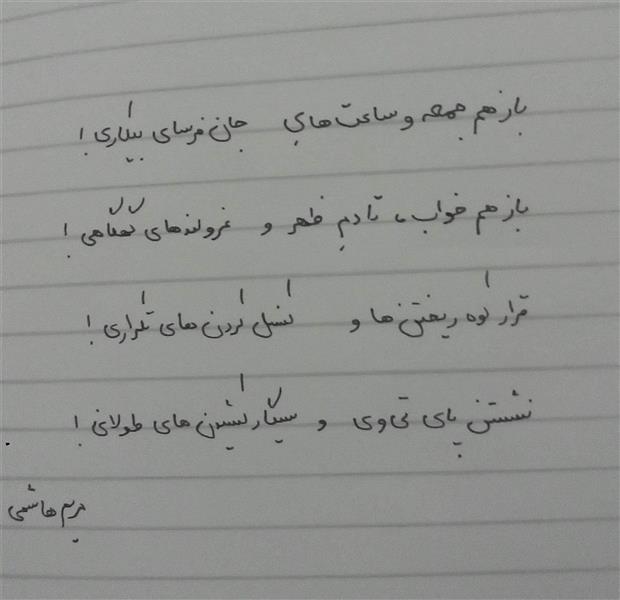 باز هم جمعه و ساعت های جان فرسای بیکاری!
باز هم خواب، تا دم ظهر و غرولندهای گهگاهی!
قرار کوه ریختن ها و کنسل کردن های تکراری!
نشستن پای تی وی و سیگار کشیدن های طولانی!
مریم هاشمی